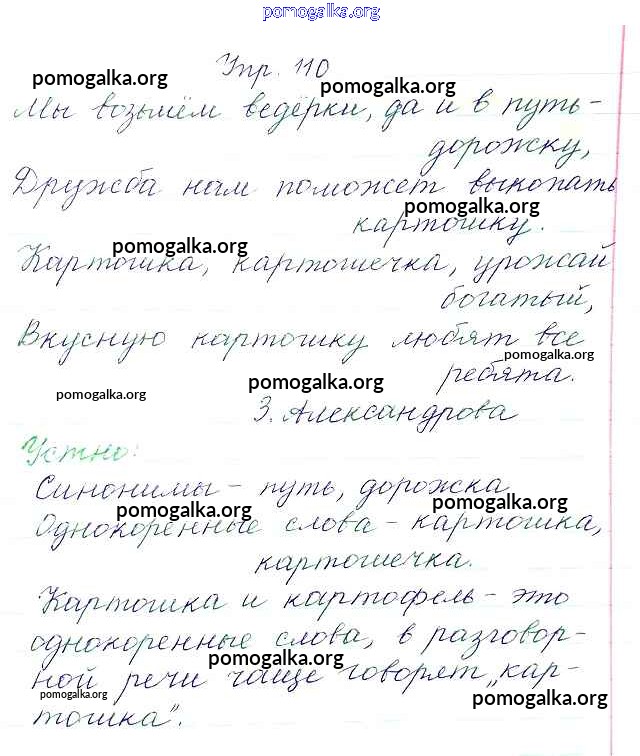 pomogalka.org
Упр. 110
pomogalka.org
pomogalka.org
Мы возьмём ведёрки, да и в путь-
дорожку,
Дружба нам поможет выкопать
pomogalka.org
картошку.
pomogalka.org
Картошка, картошечка, урожай
богатый,
Вкусную картошку любят все
pomogalka.org
ребята.
pomogalka.org
pomogalka.org
З. Александрова
Устно:
Синонимы - путь, дорожка
pomogalka.org
pomogalka.org
Однокоренные слова - картошка,
картошечка.
Картошка и картофель - это
однокоренные слова, в разговор-
pomogalka.org
ной речи чаще говорят „кар-
pomogalka.org
pomogalka.org
тошка".